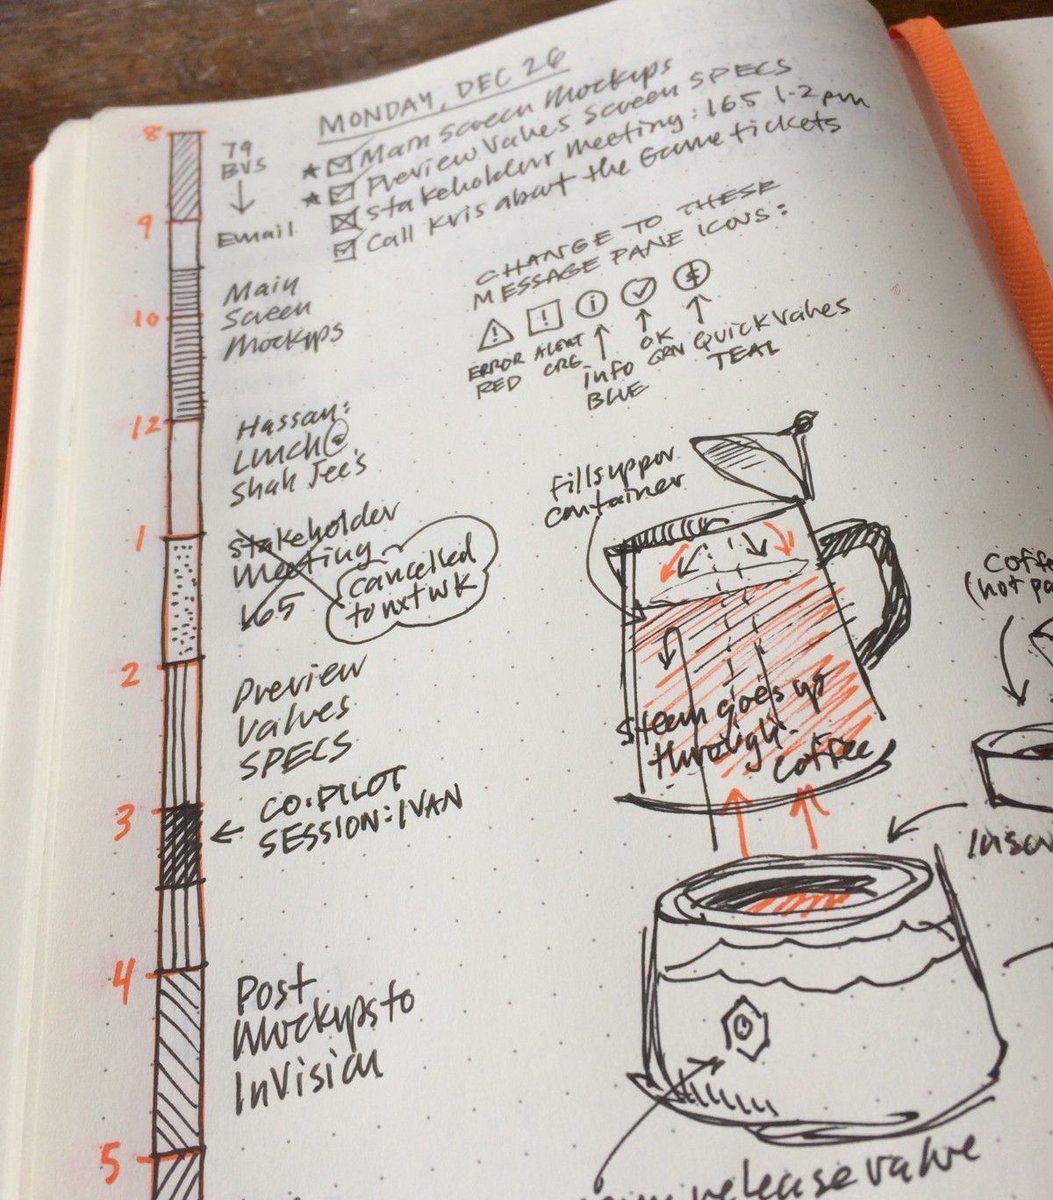 MONDAY, DEC 26
★ ☑ Main Screen Mockups
★ ☑ Preview Values Screen SPECS
☒ Stakeholder Meeting: 165 1-2pm
☑ Call Kris about the Game tickets
8
79
BVS
↓
Email
9
Main
Screen
Mockups
10
12
Hassan:
Lunch @
Shah Jee's
1
Stakeholder
Meeting
165
cancelled
to nxt wk
2
Preview
Values
SPECS
3
← CO-PILOT
SESSION: IVAN
4
Post
Mockups to
InVision
5
CHANGE TO THESE
MESSAGE PANE ICONS:
ERROR
RED
ALERT
ORG
info
BLUE
OK
GRN
QUICK VALUES
TEAL
Fills upper
container
Steam goes up
through
coffee
(not
release valve